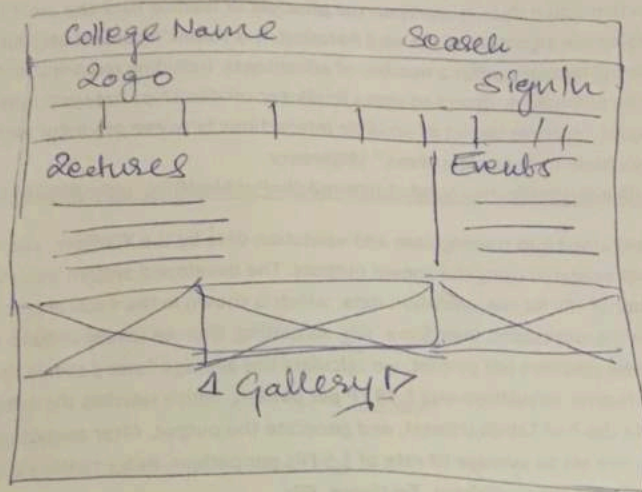 College Name Search
Logo Sign In
Lectures Events
Gallery